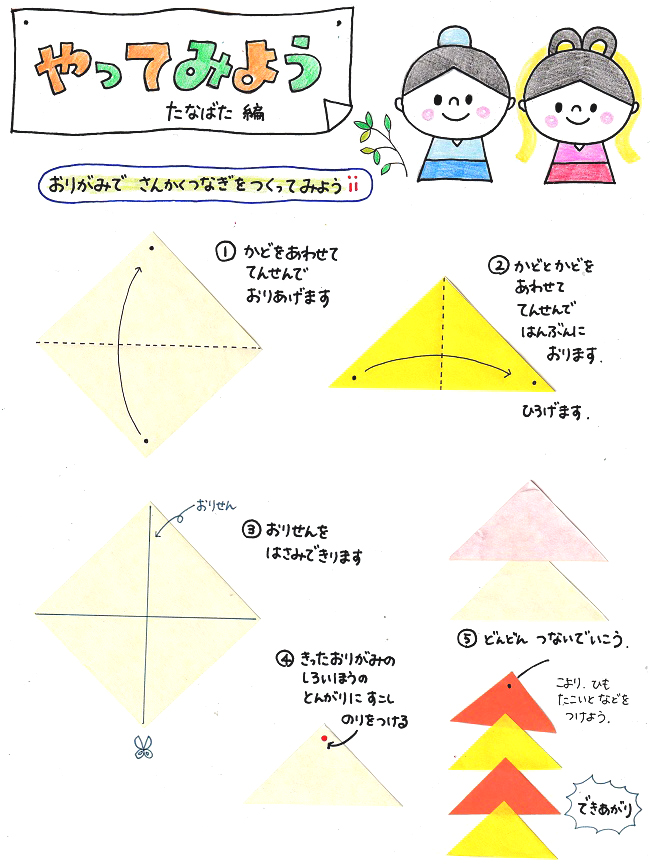 やってみよう
たなばた 編
おりがみで さんかくつなぎをつくってみよう!!
① かどをあわせて
てんせんで
おりあげます
② かどとかどを
あわせて
てんせんで
はんぶんに
おります.
ひろげます.
おりせん
③ おりせんを
はさみできります
④ きったおりがみの
しろいほうの
とんがりに すこし
のりをつける
⑤ どんどん つないでいこう.
こより. ひも
たこいと などを
つけよう.
できあがり